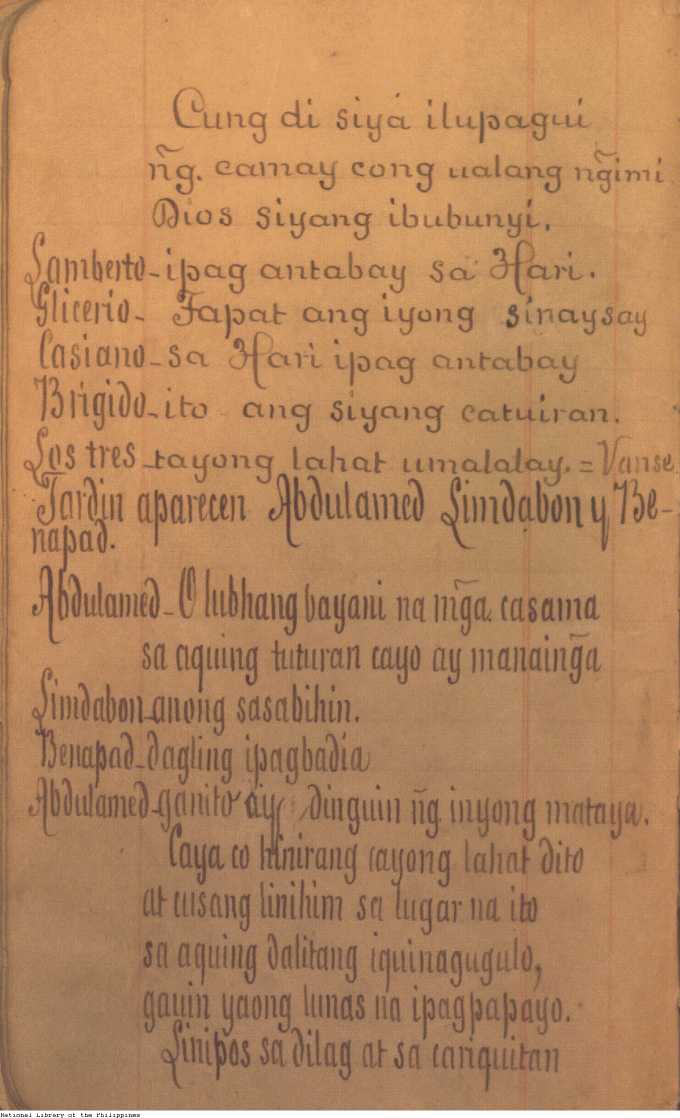 Cung di siya ilupagui
ñg. camay cong ualang ng̃imi
Dios siyang ibubunyi.
Lamberto - ipag antabay sa Hari.
Glicerio - Tapat ang iyong sinaysay
Casiano - sa Hari ipag antabay
Brigido - ito ang siyang catuiran.
Los tres - tayong lahat umalalay. = Vanse
Jardin aparecen Abdulamed Limdabon y Be-
napad.
Abdulamed - O lubhang bayani na mg̃a casama
sa aquing tuturan cayo ay manaing̃a
Limdabon - anong sasabihin.
Benapad - dagling ipagbadia
Abdulamed - ganito ay dinguin ñg inyong mataya.
Caya co hinirang cayong lahat dito
at cusang linihim sa lugar na ito
sa aquing dalitang iquinagugulo,
gauin yaong lunas na ipagpapayo.
Linipos sa dilag at sa cariquitan
National Library of the Philippines